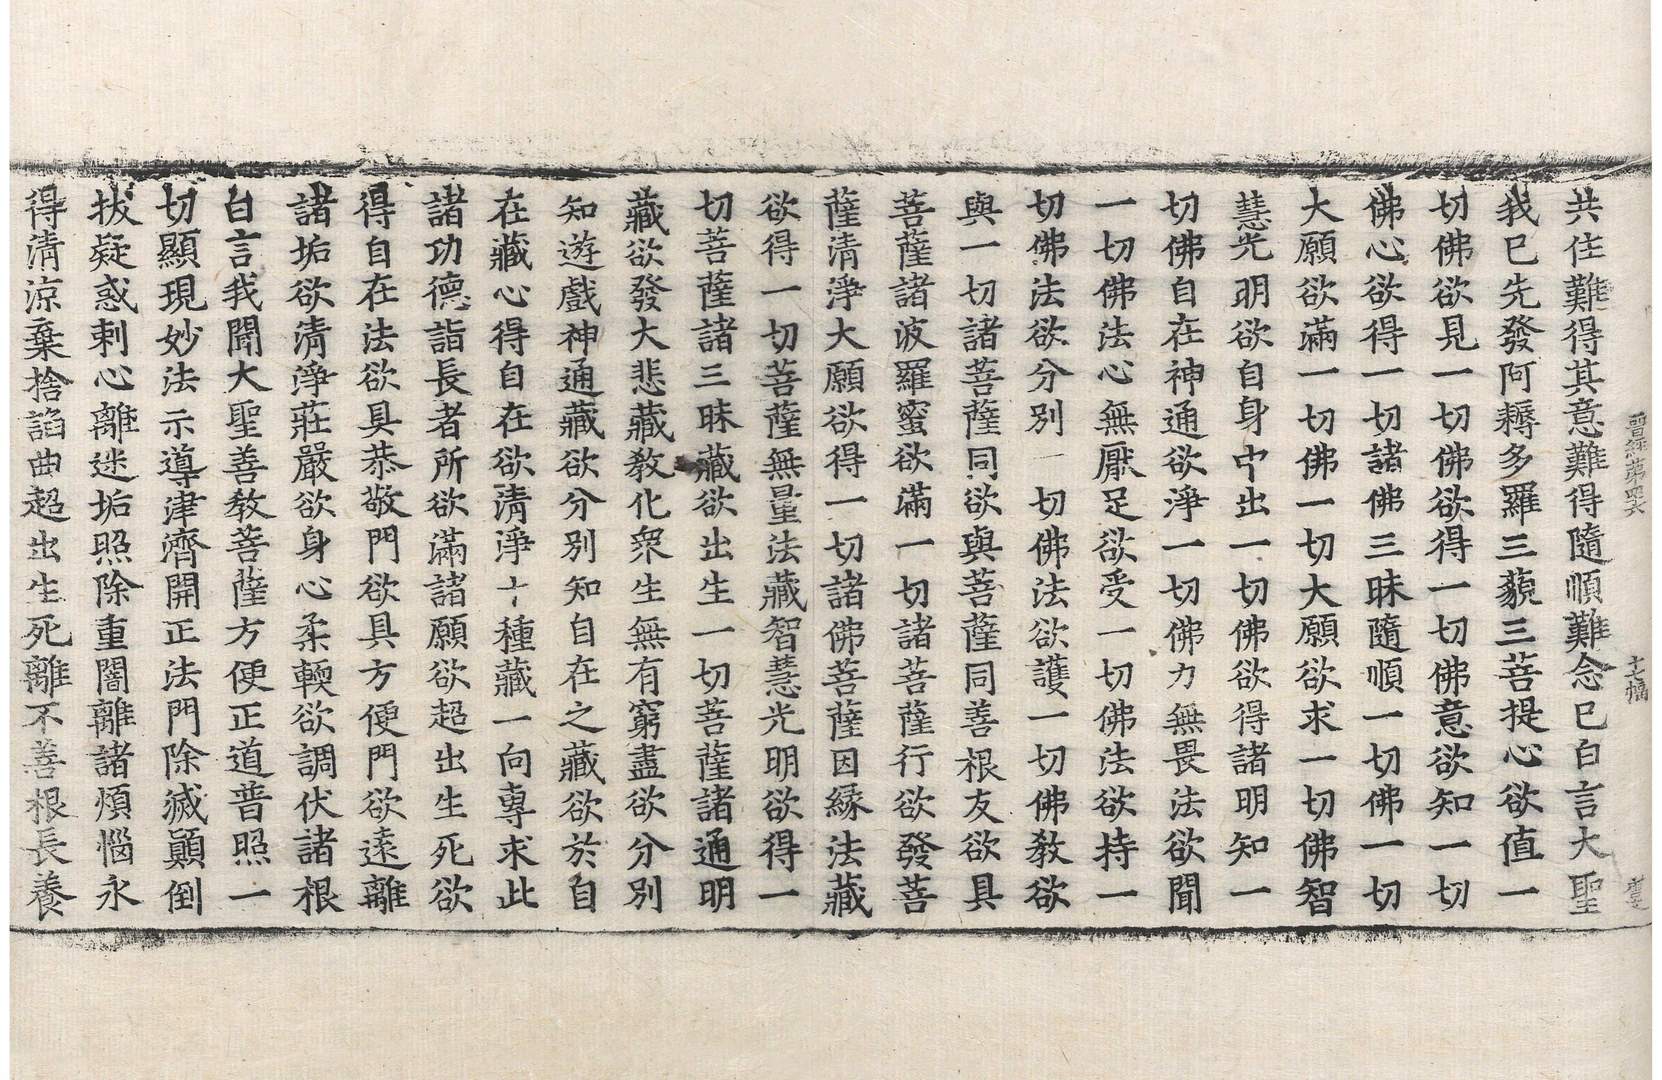 晉經第 十七幅
共住難得其意難得隨順難念已白言大聖
我已先發阿耨多羅三藐三菩提心欲值一
切佛欲見一切佛欲得一切佛意欲知一切
佛心欲得一切諸佛三昧隨順一切佛一切
大願欲滿一切佛一切大願欲求一切佛智
慧光明欲自身中出一切佛欲得諸明知一
切佛自在神通欲淨一切佛力無畏法欲聞
一切佛法心無厭足欲受一切佛法欲持一
切佛法欲分別一切佛法欲護一切佛教欲
與一切諸菩薩同欲與菩薩同善根友欲具
菩薩諸波羅蜜欲滿一切諸菩薩行欲發菩
薩清淨大願欲得一切諸佛菩薩因緣法藏
欲得一切菩薩無量法藏智慧光明欲得一
切菩薩諸三昧藏欲出生一切菩薩諸通明
藏欲發大悲藏教化衆生無有窮盡欲分別
知遊戲神通藏欲分別知自在之藏欲於自
在藏心得自在欲清淨十種藏一向專求此
諸功德詣長者所欲滿諸願欲超出生死欲
得自在法欲具恭敬門欲具方便門欲遠離
諸垢欲清淨莊嚴欲身心柔輭欲調伏諸根
白言我聞大聖善教菩薩方便正道普照一
切顯現妙法示導津濟開正法門除滅顚倒
拔疑惑刺心離迷垢照除重闇離諸煩惱永
得清涼棄捨諂曲超出生死離不善根長養